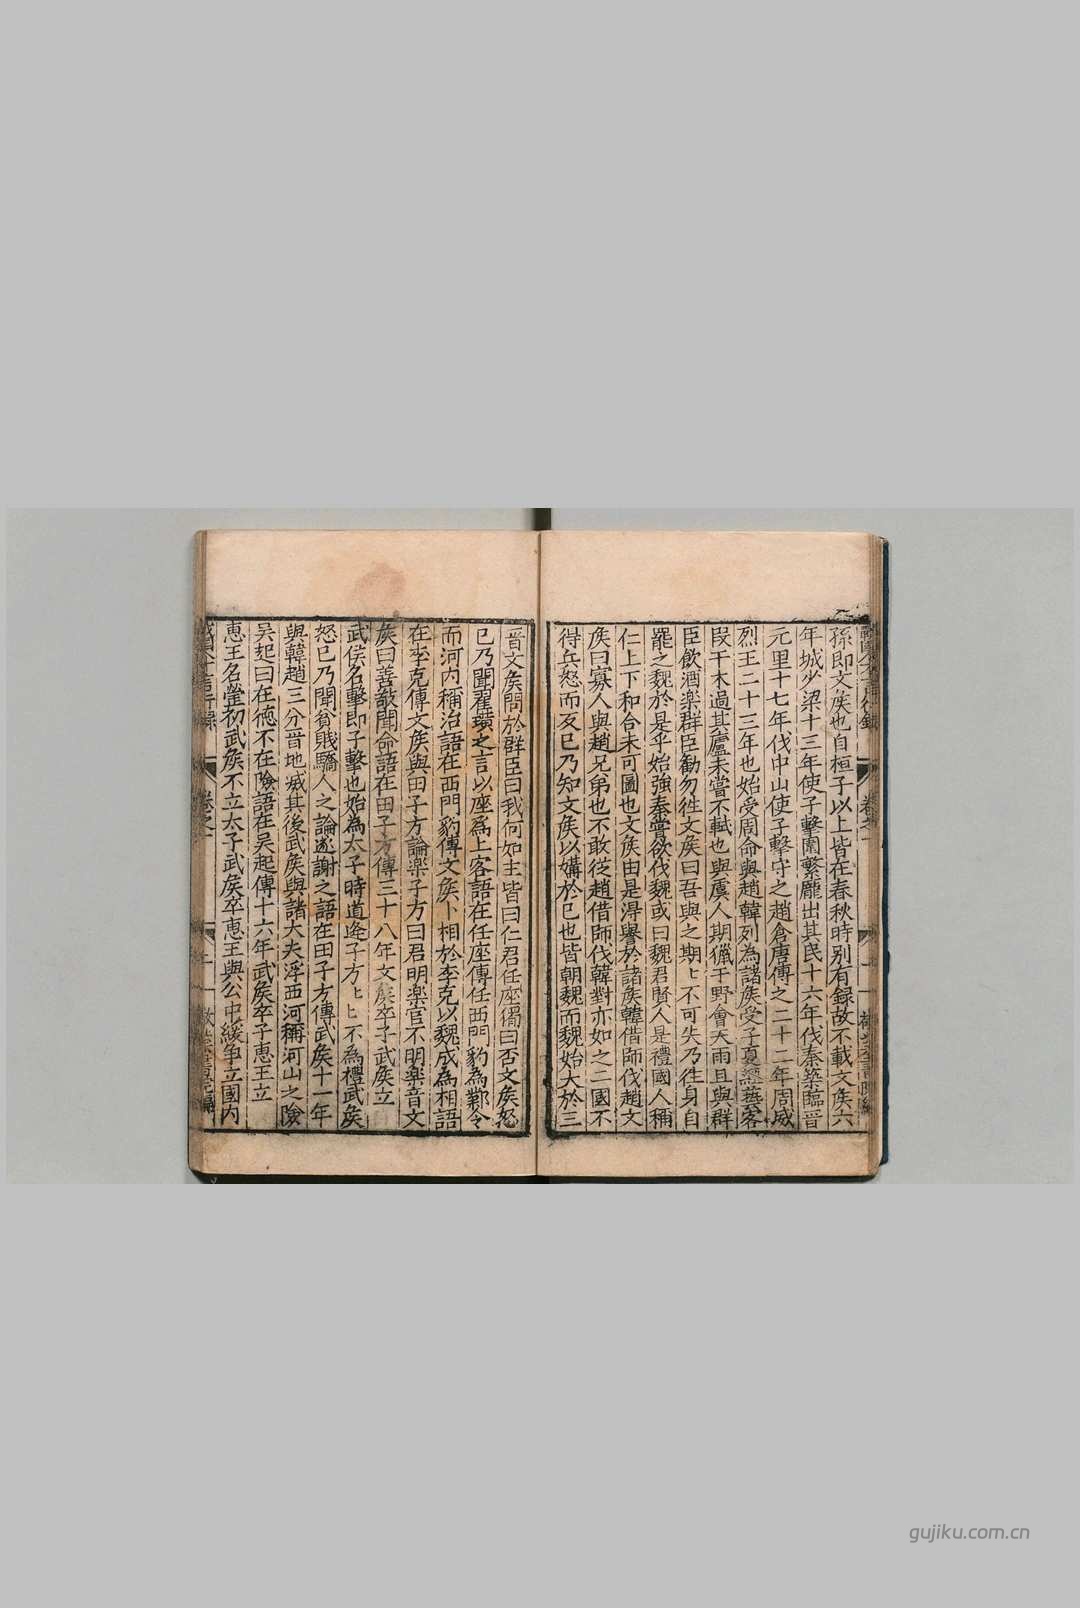 孫即文矦也自桓子以上皆在春秋時别有録故不載文矦六
年城少梁十三年使子擊圍繁龐出其民十六年伐秦築臨晉
元里十七年伐中山使子擊守之趙倉唐傳之二十二年周威
烈王二十三年也始受周命與趙韓列為諸矦受子夏經藝客
叚干木過其廬未嘗不軾也與虞人期獵于野會天雨且與群
臣飲酒楽群臣勸勿徃文矦曰吾與之期ヒ不可失乃徃身自
罷之魏於是乎始強秦嘗欲伐魏或曰魏君賢人是禮國人稱
仁上下和合未可圖也文矦由是淂譽於諸矦韓借師伐趙文
矦曰寡人與趙兄弟也不敢従趙借師伐韓對亦如之二國不
得兵怒而反已乃知文矦以媾於已也皆朝魏而魏始大於三
晋文矦問於群臣曰我何如主皆曰仁君任座獨曰否文矦怒
已乃聞翟璜之言以座爲上客語在任座傳任西門豹為鄴令
而河内稱治語在西門豹傳文矦卜相於李克以魏成為相語
在李克傳文矦與田子方論楽子方曰君明楽官不明楽音文
矦曰善敬聞命語在田子方傳三十八年文矦卒子武矦立
武侯名擊即子擊也始為太子時道逄子方ヒヒ不為禮武矦
怒已乃聞貧賎驕人之論遂謝之語在田子方傳武矦十一年
與韓趙三分晋地滅其後武矦與諸大夫浮西河稱河山之險
吴起曰在徳不在險語在吴起傳十六年武矦卒子恵王立
恵王名罃初武矦不立太子武矦卒恵王與公中緩争立國内
卷之一
gujiku.com.cn